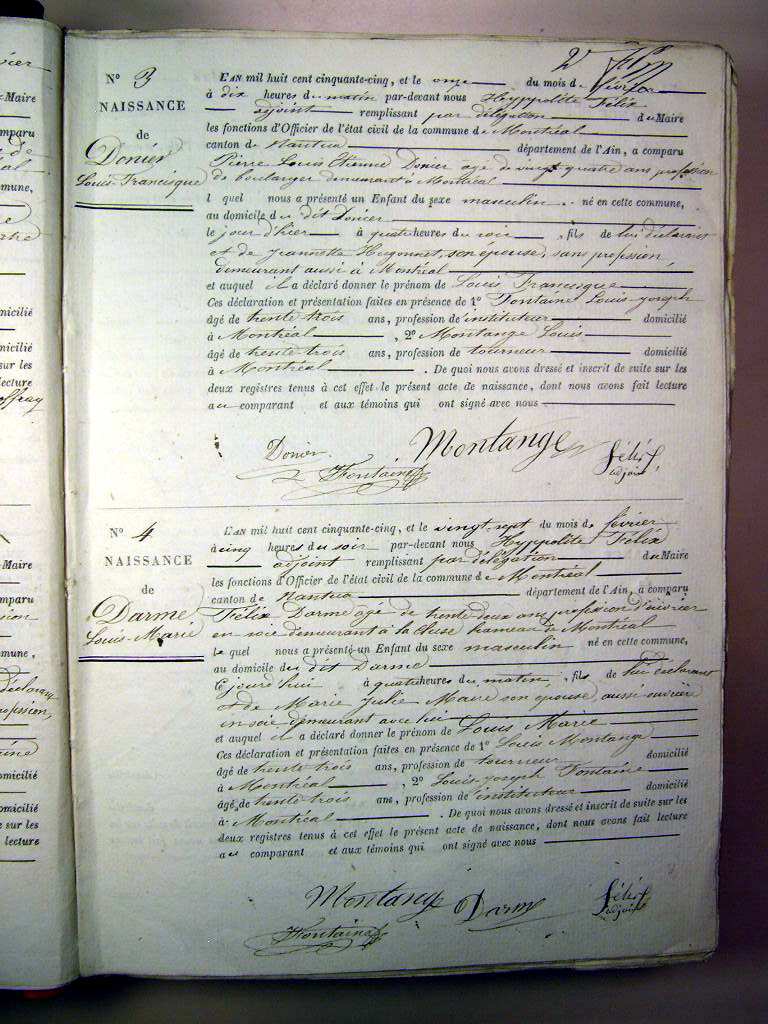 N° 3
NAISSANCE
de
Donier
Louis-Francisque
L'AN mil huit cent cinquante-cinq, et le onze du mois de février
à dix heures du matin par-devant nous Hyppolite Félix
adjoint remplissant par délégation du Maire
les fonctions d'Officier de l'état civil de la commune de Montréal
canton de Nantua département de l'Ain, a comparu
Pierre Louis Etienne Donier agé de vingt quatre ans profession
de boulanger demeurant à Montréal
lequel nous a présenté un Enfant du sexe masculin né en cette commune,
au domicile du dit Donier
le jour d'hier à quatre heures du soir, fils de lui déclarant
et de Jeannette Hugonnet, son épouse, sans profession,
demeurant aussi à Montréal
et auquel il a déclaré donner le prénom de Louis Francisque
Ces déclaration et présentation faites en présence de 1° Fontaine Louis-joseph
âgé de trente trois ans, profession de instituteur domicilié
à Montréal, 2° Montange Louis
âgé de trente trois ans, profession de tourneur domicilié
à Montréal. De quoi nous avons dressé et inscrit de suite sur les
deux registres tenus à cet effet le présent acte de naissance, dont nous avons fait lecture
au comparant et aux témoins qui ont signé avec nous
Donier Montange Félix
Fontaine adjoint
N° 4
NAISSANCE
de
Darme
Louis-Marie
L'AN mil huit cent cinquante-cinq, et le vingt-sept du mois de février
à cinq heures du soir par-devant nous Hyppolite Félix
adjoint remplissant par délégation du Maire
les fonctions d'Officier de l'état civil de la commune de Montréal
canton de Nantua département de l'Ain, a comparu
Félix Darme agé de trente deux ans profession d'ouvrier
en soie demeurant à la Cluse hameau de Montréal
lequel nous a présenté un Enfant du sexe masculin né en cette commune,
au domicile du dit Darme
Cejourd'hui à quatre heures du matin, fils de lui déclarant
et de Marie Julie Maire son épouse, aussi ouvrière
en soie demeurant avec lui
et auquel il a déclaré donner le prénom de Louis Marie
Ces déclaration et présentation faites en présence de 1° Louis Montange
âgé de trente trois ans, profession de tourneur domicilié
à Montréal, 2° Louis-joseph Fontaine
âgé de trente trois ans, profession de instituteur domicilié
à Montréal. De quoi nous avons dressé et inscrit de suite sur les
deux registres tenus à cet effet le présent acte de naissance, dont nous avons fait lecture
au comparant et aux témoins qui ont signé avec nous
Montange Darme Félix
Fontaine adjoint